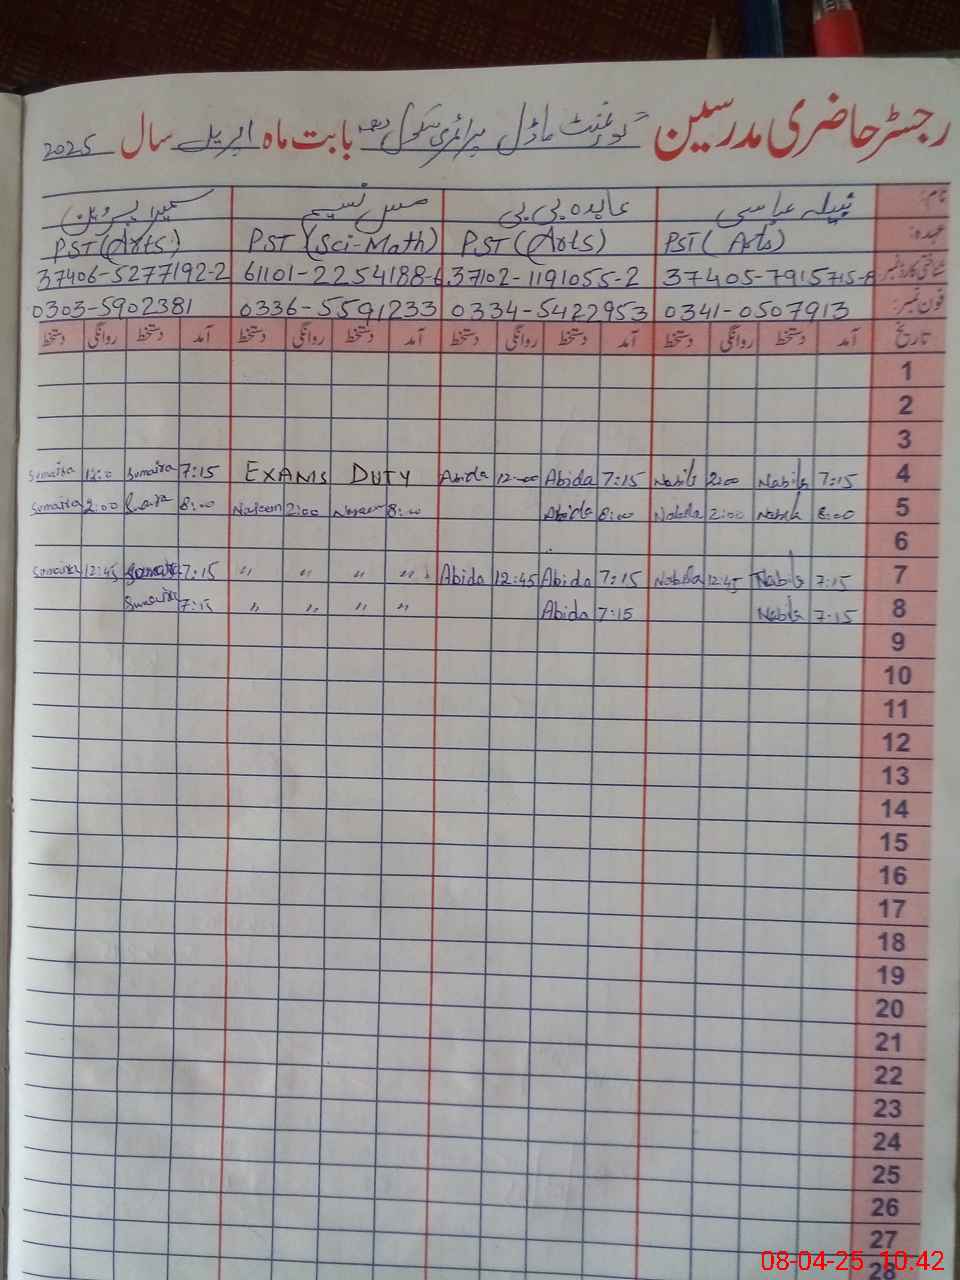 رجسٹر حاضری مدرسین گورنمنٹ ماڈل پرائمری سکول بابت ماہ اپریل سال 2025
نام: نبیلہ عباسی عابدہ بی بی مس نسیم سمیرا پروین
عہدہ: PST (Arts) PST (Arts) PST (Sci-Math) PST (Arts)
شناختی کارڈ نمبر 37405-7915715-8 37102-1191055-2 61101-2254188-6 37406-5277192-2
فون نمبر: 0341-0507913 0334-5422953 0336-5591233 0303-5902381
تاریخ آمد دستخط روانگی دستخط آمد دستخط روانگی دستخط آمد دستخط روانگی دستخط آمد دستخط روانگی دستخط
1
2
3
4 7:15 Nabila 2:00 Nabila 7:15 Abida 12:00 Abida EXAMS DUTY 7:15 Sumaira 12:0 Sumaira
5 8:00 Nabila 2:00 Nabila 8:00 Abida 8:00 Naseem 2:00 Naseem 8:00 2:00 Sumaira
6
7 7:15 Nabila 12:45 Nabila 7:15 Abida 12:45 Abida " " " " 7:15 Sumaira 12:45 Sumaira
8 7:15 Nabila 7:15 Abida " " " " 7:15 Sumaira
9
10
11
12
13
14
15
16
17
18
19
20
21
22
23
24
25
26
27
28
08-04-25 10:42